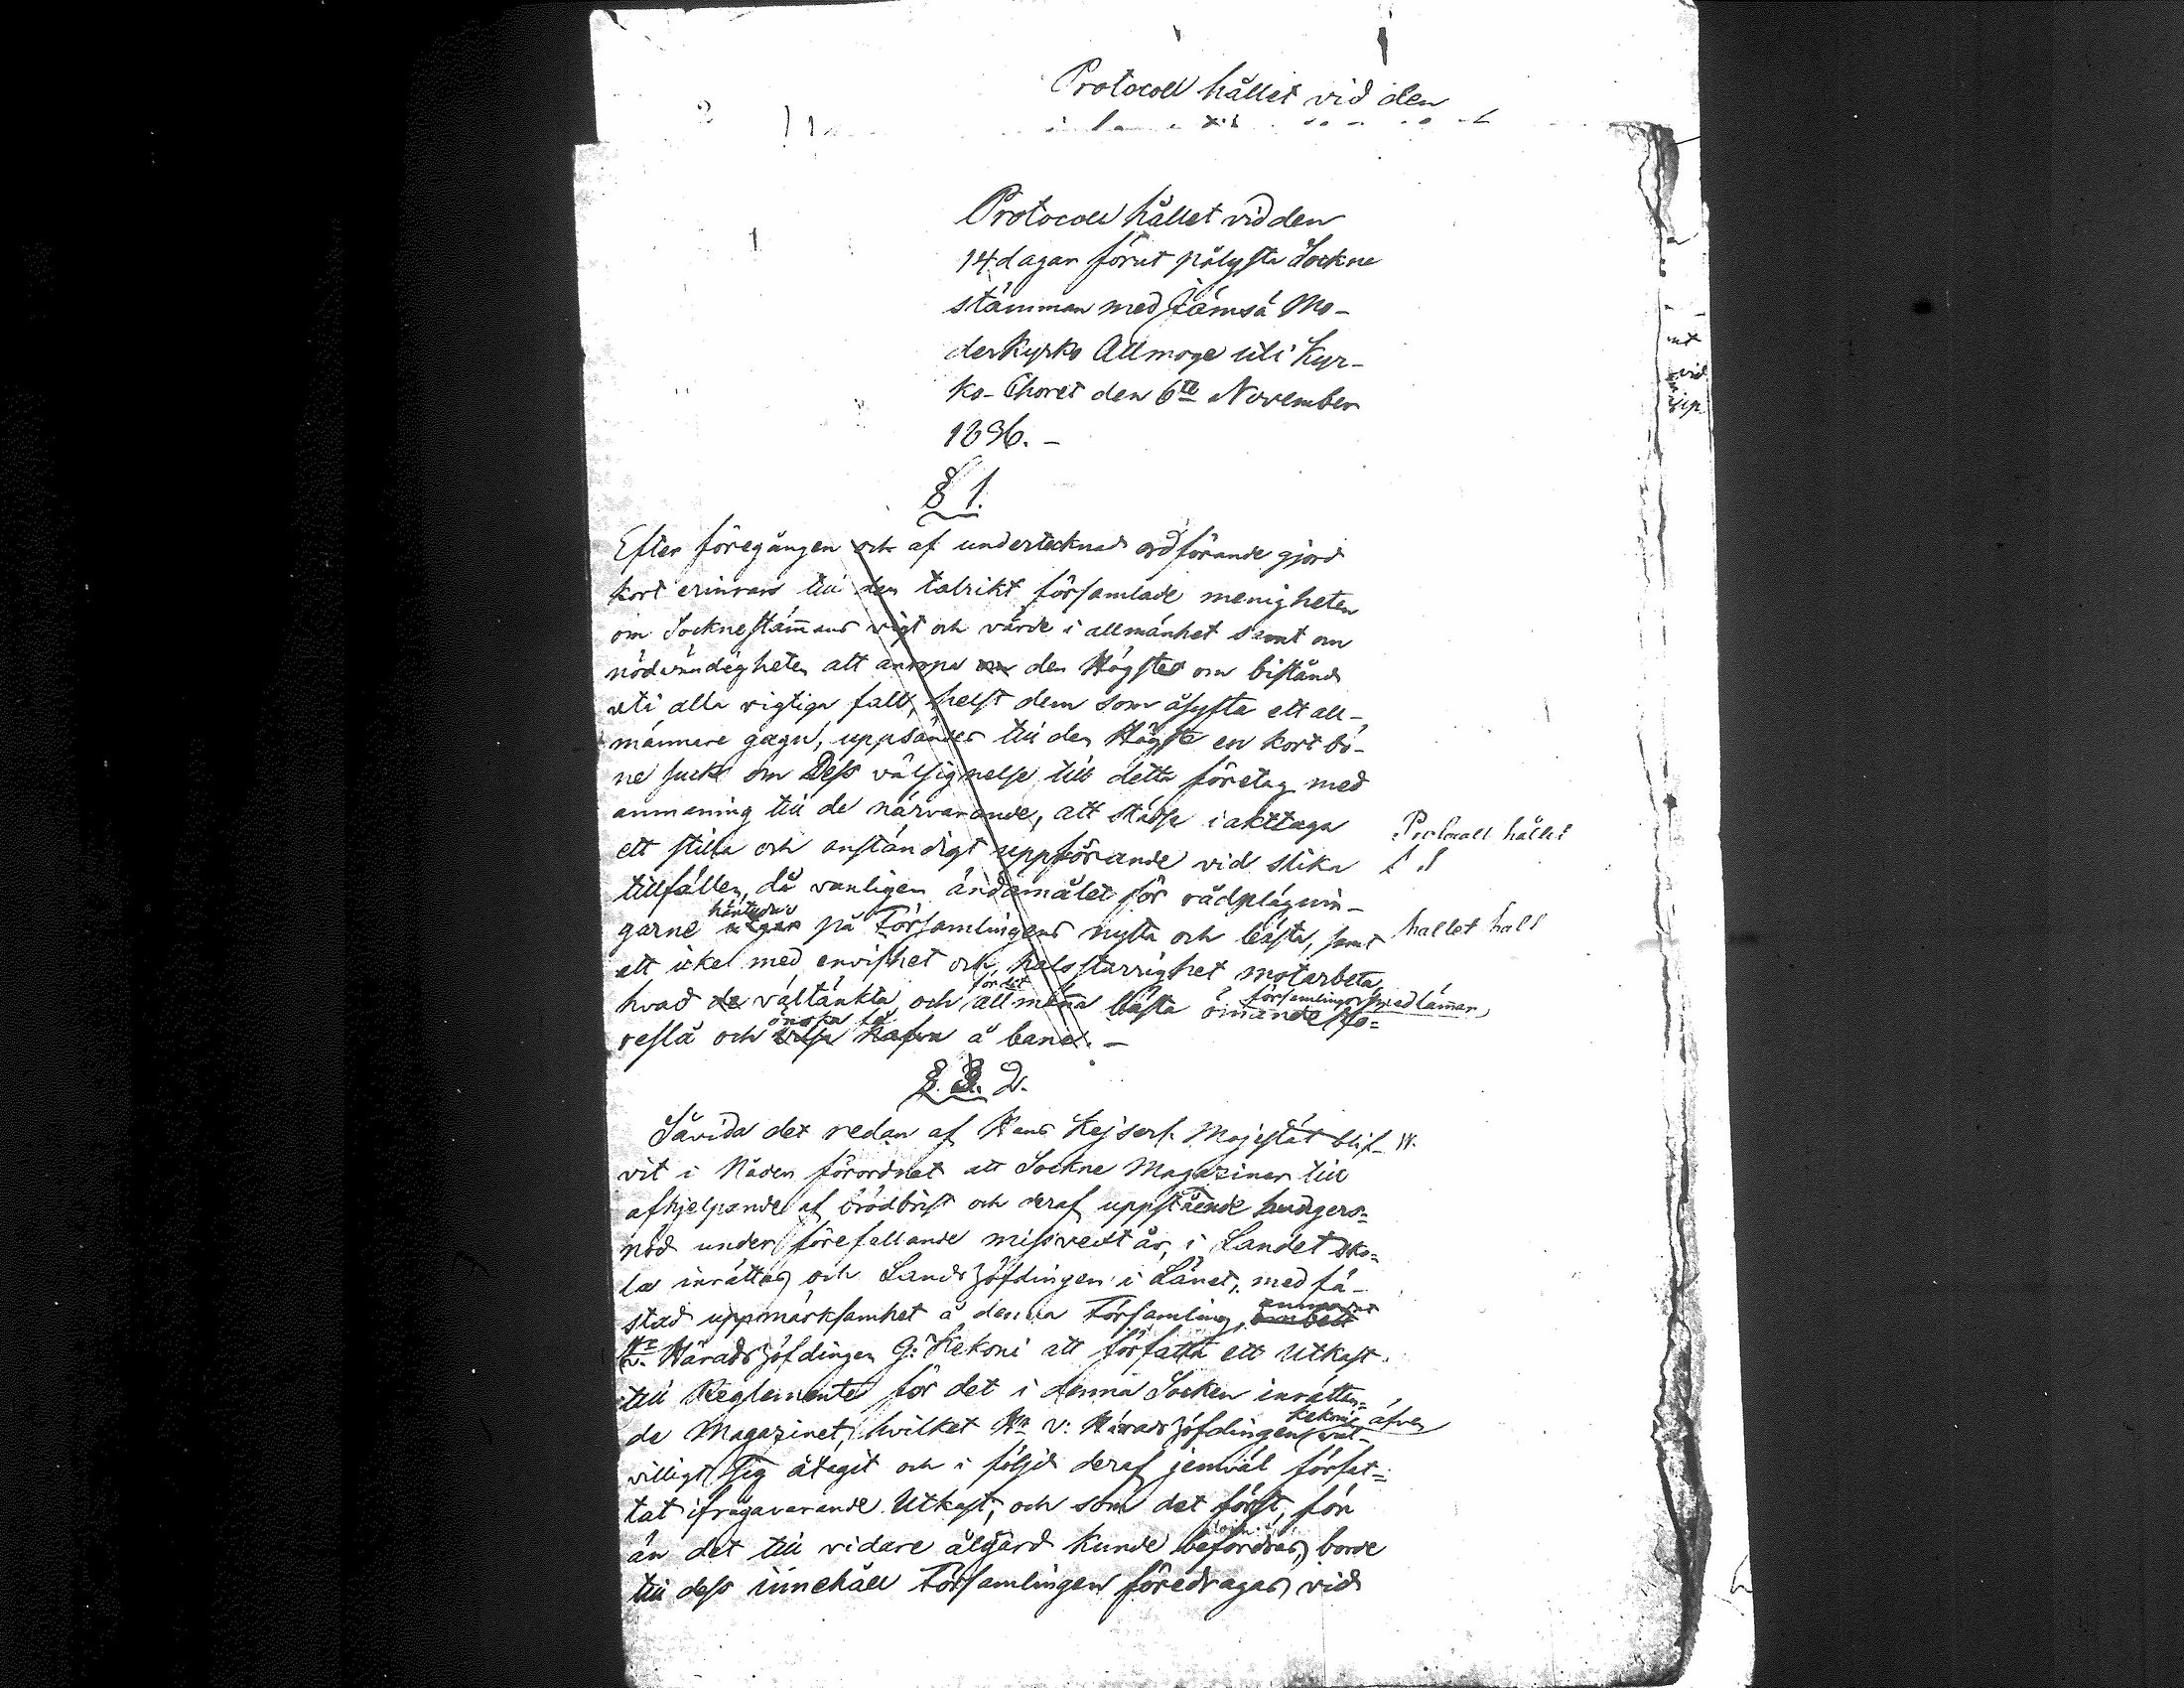 Protocoll hållet vid den
Protocoll hållet vid den
14 dagar förut pålysta Sockne
stämman med Jämsä Mo-
derkyrko Allmoge uti Kyr-
ko-Choret den 6te November
1836.-
§ 1.
Efter föregången och af undertecknad ordförande gjord
kort erinran till den talrikt församlade menigheten
om Socknestämans vigt och värde i allmänhet samt om
nödvändigheten att anropa den Högste om bistånd
uti alla vigtiga fall, helst dem som åsyfta ett all-
männare gagn, uppsändes till den Högste en kort bö-
ne suck om Dess välsignelse till detta företag med
anmaning till de närvarande, att städse iakttaga
ett stilla och anständigt uppförande vid slika
tillfällen, då vanligen ändamålet för rådplägnin-
garne häntyder på Församlingens nytta och bästa, samt
ett ickel med envishet och halsstarrighet motarbeta,
hvad de vältänkta och för det allmäna bästa ömande församlingens medlämar, fö-
reslå och önska få å bane.-
Protocoll hållet
hallet hall
§. 2.
Såvida det redan af Hans Kejserl. Majestät blif-
vit i Nåder förordnat att Sockne Magaziner till
afhjelpande af brödbrist och deraf uppstående hungers-
nöd under förefallande missvext år, i Landet sko-
la inrättas och Landshöfdingen i Länet, med fä-
stad uppmärksamhet å denna Församling, anmodat
Hr v. Häradshöfdingen G: Kekoni att författa ett Utkast
till Reglemente för det i denna Socken inrättan-
de Magazinet, hvilket Hr v: Häradshöfdingen Kekoni äfven väl-
villigt sig åtagit och i följd deraf jemväl förfat-
tat ifrågavarande Utkast, och som det först, förr
än det till vidare åtgärd kunde befordras, borde
till dess innehåll Församlingen föredragas, vid